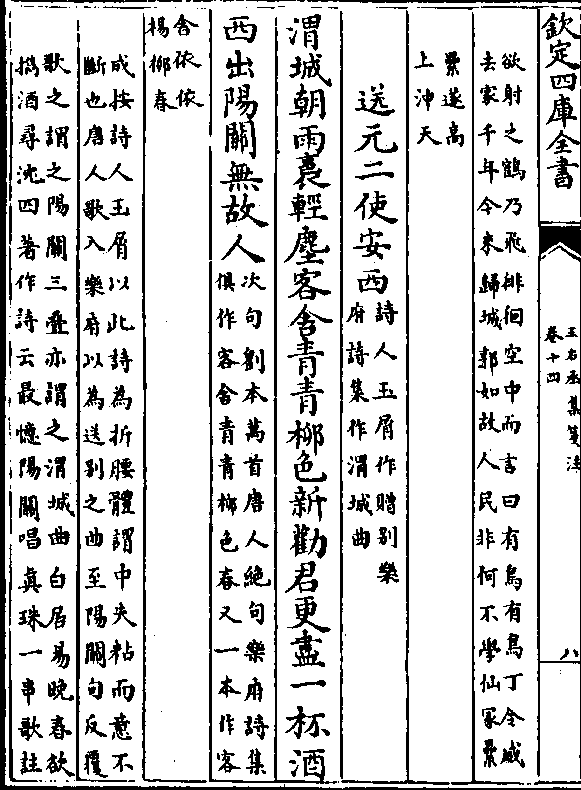 欽定四庫全書
王右丞集箋注
卷十四
八
欲射之鶴乃飛徘徊空中而言曰有鳥有鳥丁令威
去家千年今来歸城郭如故人民非何不學仙冢纍
纍遂高
上沖天
送元二使安西
詩人玉屑作贈别樂
府詩集作渭城曲
渭城朝雨裛輕塵客舍青青柳色新勸君更盡一杯酒
西出陽關無故人
次句劉本萬首唐人絶句樂府詩集
俱作客舍青青柳色春又一本作客
舍依依
楊柳春
成按詩人玉屑以此詩為折腰體謂中失粘而意不
斷也唐人歌入樂府以為送别之曲至陽關句反覆
歌之謂之陽關三疊亦謂之渭城曲白居易晚春欲
攜酒尋沈四著作詩云最憶陽關唱真珠一串歌註